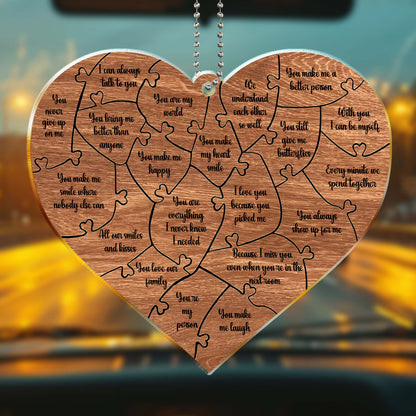 I can always
talk to you
You make me a
better person
You
never
give up
on me
You bring me
better than
anyone
You are my
world
We
understand
each other
so well
With you
I can be myself
You make
my heart
smile
You still
give me
butterflies
You make me
happy
Every minute we
spend together
You make me
smile where
nobody else can
You are
everything
I never knew
I needed
I love you
because you
picked me
You always
show up for me
All our smiles
and kisses
Because I miss you,
even when you're in the
next room
You love our
family
You're
my
person
You make
me laugh